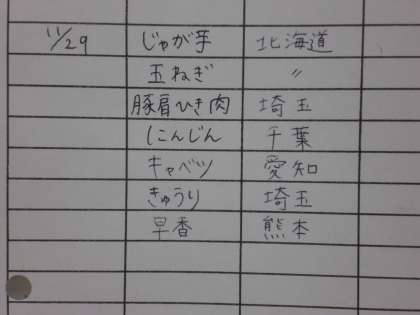 11/29 じゃが芋 北海道
玉ねぎ 〃
豚肩ひき肉 埼玉
にんじん 千葉
キャベツ 愛知
きゅうり 埼玉
早香 熊本